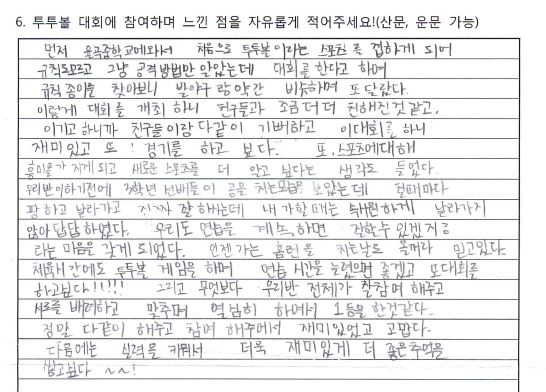 6. 투투볼 대회에 참여하며 느낀 점을 자유롭게 적어주세요!(산문, 운문 가능)
먼저 율곡중학교에와서 처음으로 투투볼 이라는 스포츠를 접하게 되어
규칙도모르고 그냥 공격방법만 알았는데 대회를 한다고 하여
규칙 종이를 찾아보니 발야구랑약간 비슷하며 또 달랐다.
이렇게 대회를 개최 하니 친구들과 조금 더 더 친해진것 같고,
이기고 하니까 친구들이랑 다같이 기뻐하고 이대회를 하니
재미있고 또! 경기를 하고 싶다. 또, 스포츠에대해
흥미를가 지게 되고 새로운 스포츠를 더 알고 싶다는 생각도 들었다.
우리반이하기전에 3학년 선배들이 공을 치는모습을 보았는데 칠때마다
팡 하고 날라가고 진짜 잘 하셨는데 내가할때는 시원하게 날라가지
않아답답하였다. 우리도 연습을 계속하면 잘할수 있겠지?
라는 마음을 갖게 되었다. 언젠가는 홈런을 치는날도 올꺼라 믿고있다.
체육시간에도 투투볼 게임을 하며 연습 시간을 늘렸으면 좋겠고 또대회를
하고싶다!!!!! 그리고 무엇보다 우리반 전체가 잘참여 해주고
서로를 배려하고 맞추며 열심히 하여서 1등을 한것같다.
정말 다같이 해주고 참여 해주어서 재미있었고 고맙다.
다음에는 실력을 키워서 더욱 재미있게 더 좋은추억을
쌓고싶다 ~~!